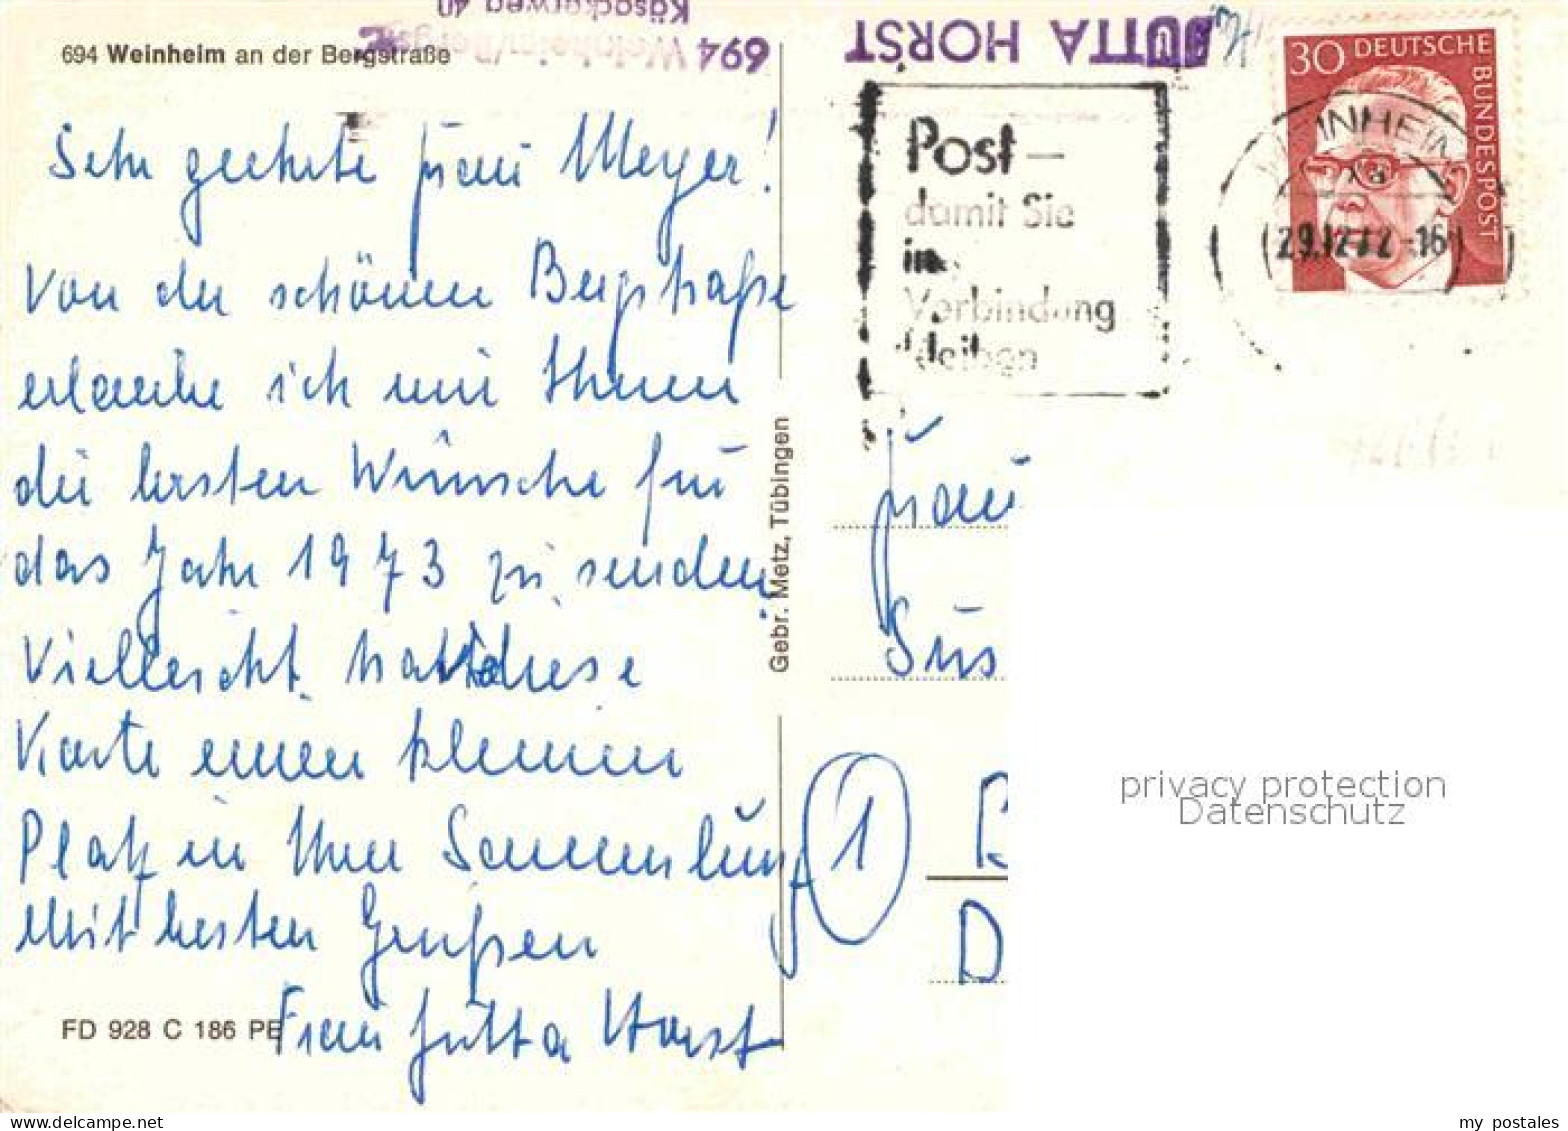 Käsackerweg 40
694 Weinheim/Bergstr.
JUTTA HORST
694 Weinheim an der Bergstraße
Sehr geehrte Frau Meyer!
Von der schönen Bergstraße
erlaube ich mir Ihnen
die besten Wünsche für
das Jahr 1973 zu senden.
Vielleicht hat diese
Karte einen kleinen
Platz in Ihrer Sammlung
Mit besten Grüßen
Frau Jutta Horst
FD 928 C 186 PE
Gebr. Metz, Tübingen
Post –
damit Sie
in
Verbindung
bleiben
30 DEUTSCHE BUNDESPOST
WEINHEIM
29.12.72-16
Frau
Sus
1
D
privacy protection
Datenschutz
my postales